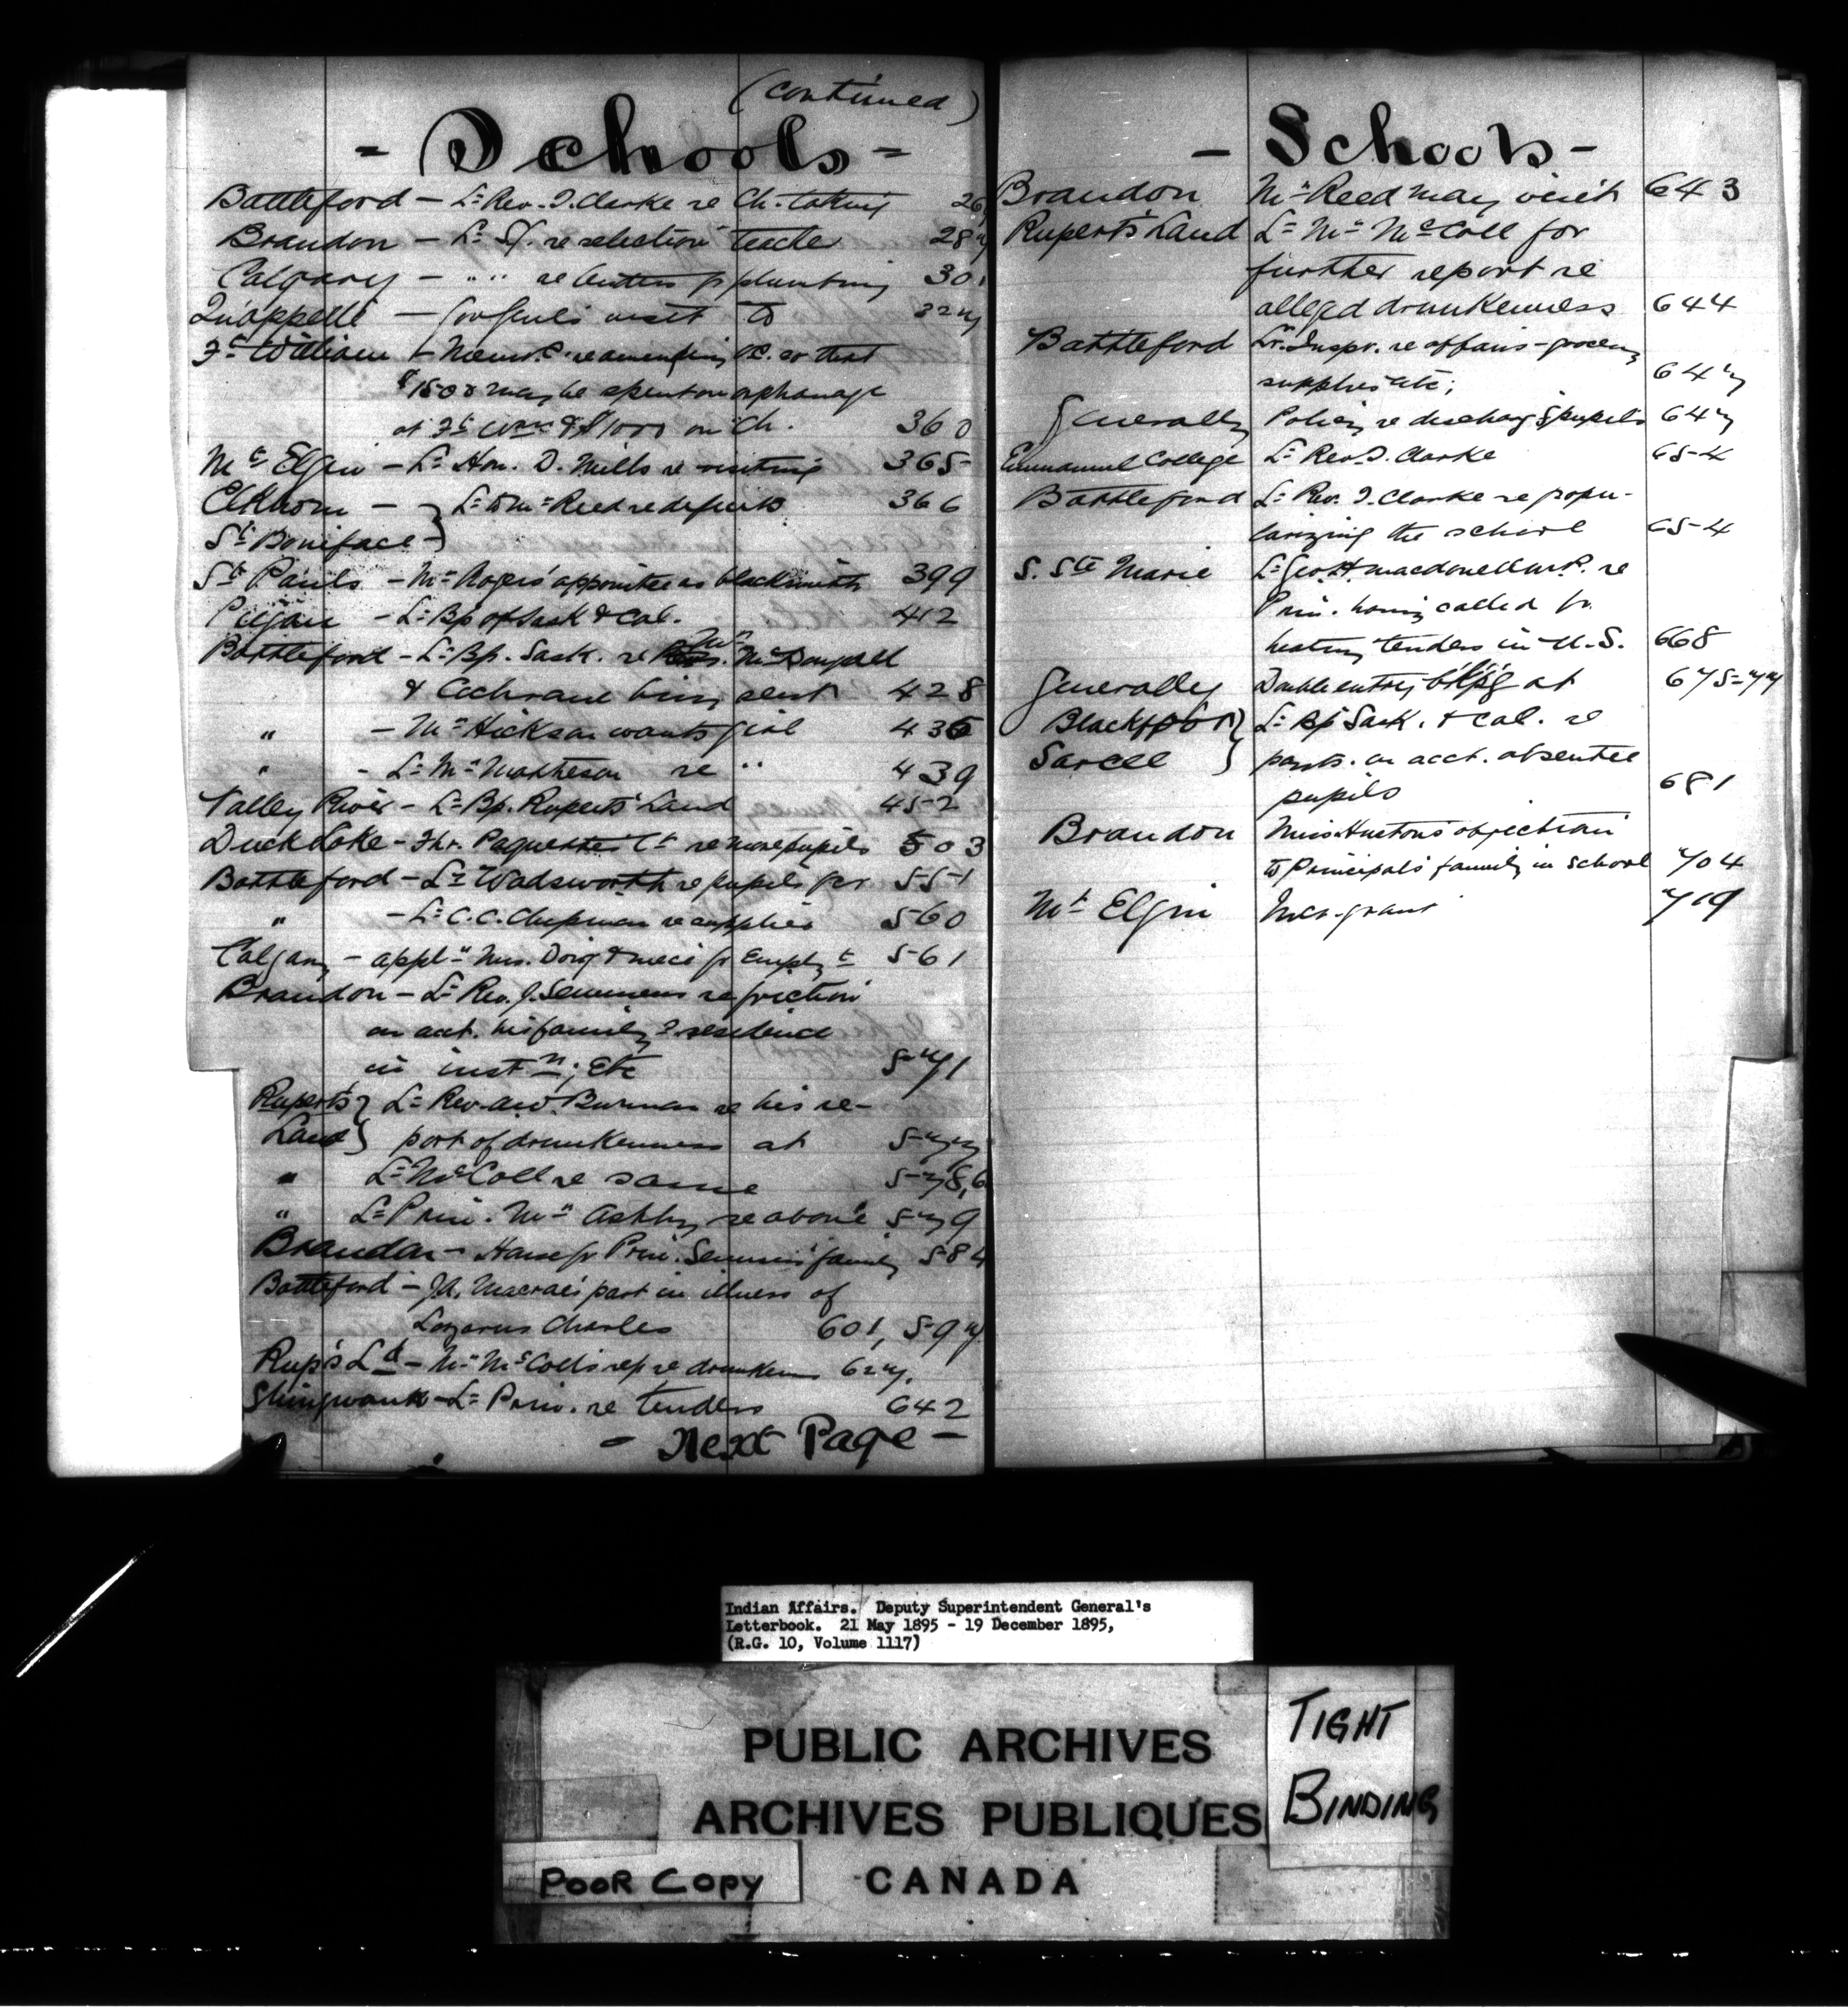 (continued)
- Schools -
Battleford - Lr Rev. J. Clarke re Ch. taking 26
Brandon - Lr re selection teacher 287
Calgary - " " re tenders fr plumbing 301
Qu'appelle - Gov Genl's visit to 327
Ft William - Memo. re amending so that
$1500 may be spent on orphanage
at Ft Wm & $1000 on Ch. 360
Mt Elgin - Lr Hon. D. Mills re visiting 365
Elkhorn - } Lr to Mr Reed re deficits 366
St Boniface - }
St Pauls - Mr Rogers' appointee as blacksmith 399
Peigan - Lr Bp of Sask & Cal. 412
Battleford - Lr Bp. Sask. re Mr. McDougall
& Cochrane being sent 428
" - Mr Hickson wants girl 436
" - Lr Mr Matheson re " 439
Valley River - Lr Bp. Ruperts Land 452
Duck Lake - Fhr. Paquette's Lr re more pupils 503
Battleford - Lr Wadsworth re pupils for 551
" - Lr C.C. Chipman re supplies 560
Calgary - appln Mrs. Doig & niece fr Employt 561
Brandon - Lr Rev. J. Semmens re friction
on acct. his family's residence
in instn; Etc 571
Rupert's } Lr Rev. A.W. Burman re his re-
Land } port of drunkenness at 577
" Lr McColl re same 578, 6
" Lr Prin. Mr Ashby re above 579
Brandon - House fr Prin. Semmens' family 584
Battleford - J.A. Macrae's part in illness of
Lazarus Charles 601, 597
Rup's Ld - Mr McColl's rep re drunkenns 627.
Shingwauk - Lr Prin. re tenders 642
- Next Page -
- Schools -
Brandon Mr Reed may visit 643
Rupert's Land Lr Mr McColl for
further report re
alleged drunkenness 644
Battleford Lr. Inspr. re affairs - grocery
supplies etc; 647
Generally Policy re discharg'g pupils 647
Emmanuel College Lr Rev. J. Clarke 654
Battleford Lr Rev. J. Clarke re popu-
larizing the school 654
S. Ste Marie Lr Geo. H. Macdonell M.P. re
Prin. having called fr.
heating tenders in U.S. 668
Generally Double entry b'kp'g at 675-77
Blackfoot } Lr Bp Sask. & Cal. re
Sarcee } paymts. on acct. absentee
pupils 681
Brandon Miss Huston's objection
to Principal's family in school 704
Mt Elgin Incr. grant 719
Indian Affairs. Deputy Superintendent General's
Letterbook. 21 May 1895 - 19 December 1895,
(R.G. 10, Volume 1117)
PUBLIC ARCHIVES
ARCHIVES PUBLIQUES
CANADA
TIGHT
BINDING
POOR COPY